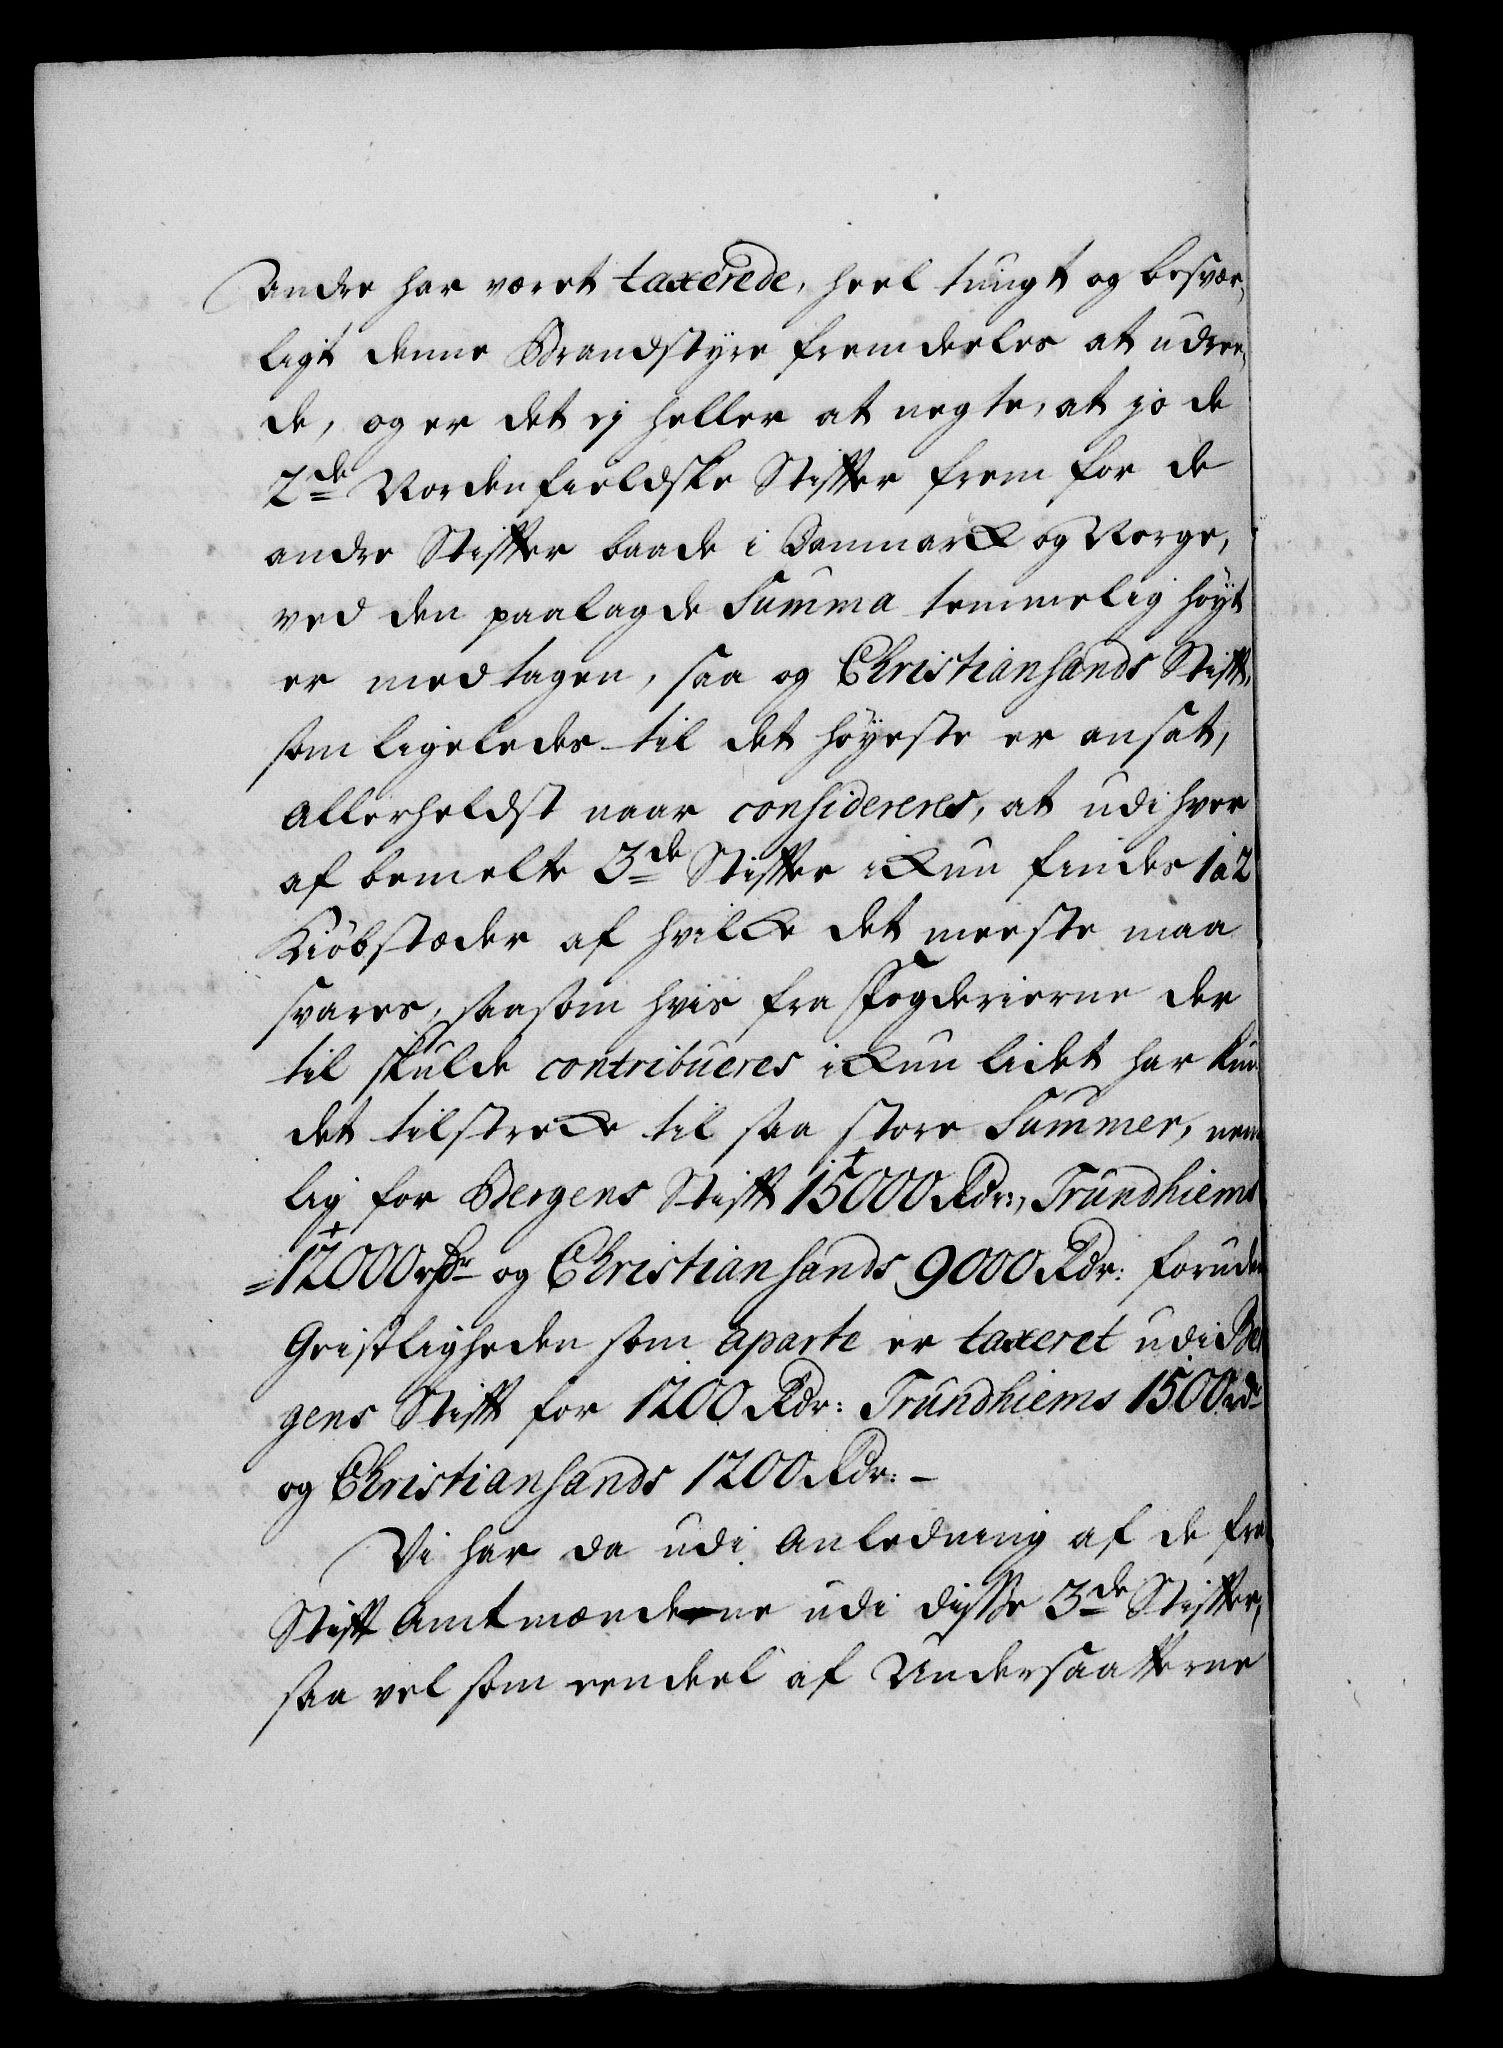 andre har været taxerede, heel tungt og besvær-
ligt denne Brandstyre fremdeeles at udree-
de, og er det ej heller at negte, at jo de
2de Nordenfieldske Stifter frem for de
andre Stifter baade i Danmarck og Norge,
ved den paalagde Summa temmelig høyt
er medtagen, saa og Christiansands Stift,
som ligeledes til det høyeste er ansat,
allerheldst naar considereres, at udi hver
af bemelte 3de Stifter ickun findes 1 à 2
Kiøbstæder af hvilcke det meeste maa
svares, saasom hvis fra Fogderierne der
til skulde contribueres ickun lidet har kun-
det tilstrecke til saa store Summer, nem
lig for Bergens Stift 15000 Rdr:, Trundhiems
12000 rdr og Christiansands 9000 Rdr: foruden
Geistligheden som aparte er taxeret udi Ber
gens Stift for 1200 Rdr: Trundhiems 1500 rdr
og Christiansands 1200 Rdr: –
Vi har da udi Anledning af de fra
Stift Amtmændene udi disse 3de Stifter,
saa vel som eendeel af Undersaatterne